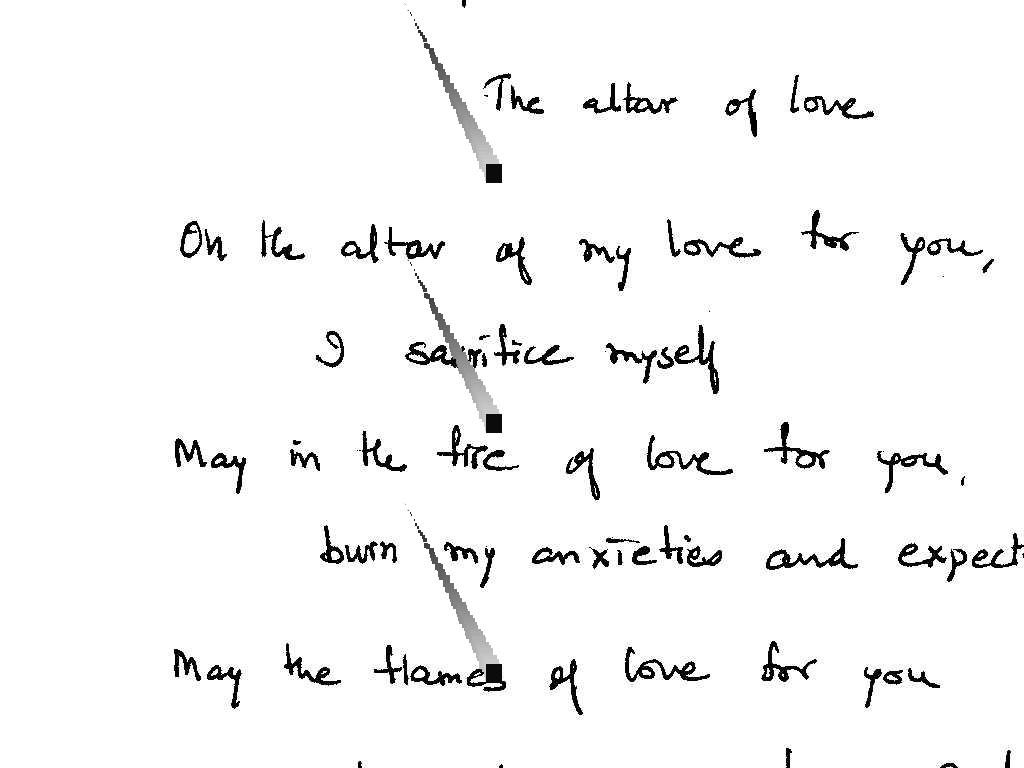 The altar of love
On the altar of my love for you,
I sacrifice myself
May in the fire of love for you,
burn my anxieties and expect
May the flames of love for you